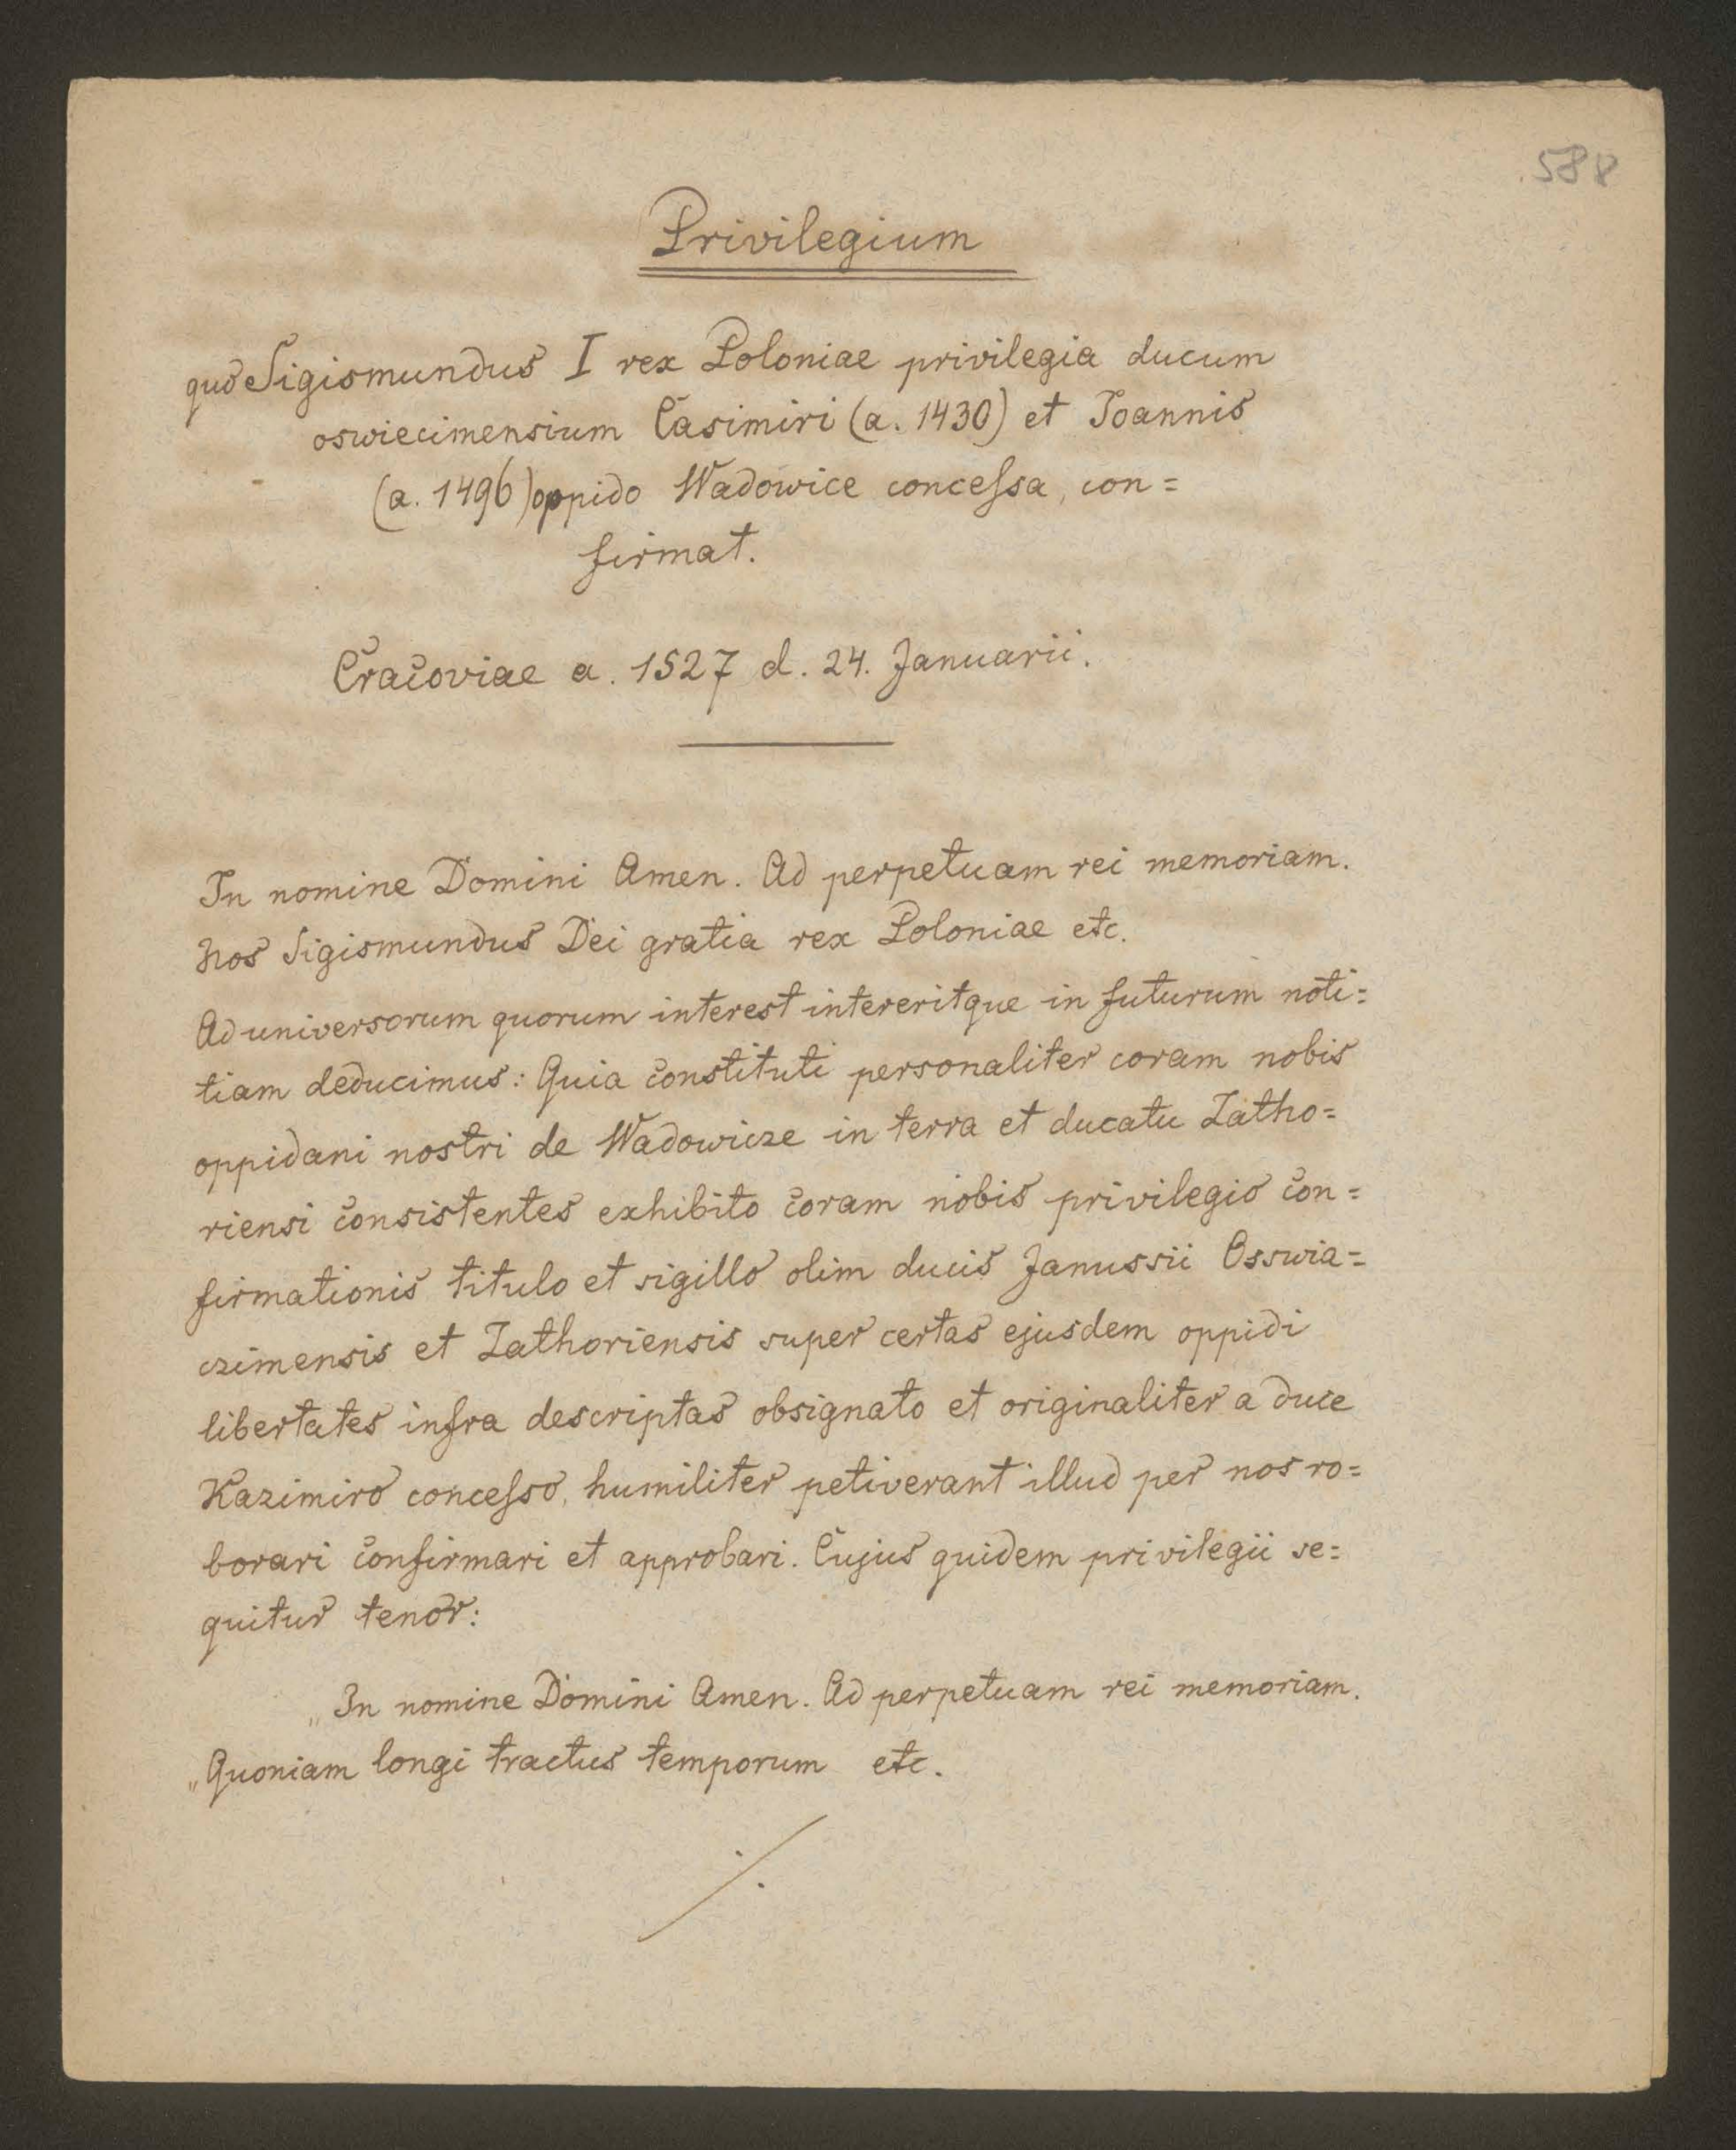 588
Privilegium
quo Sigismundus I rex Poloniae privilegia ducum
oswiecimensium Casimiri (a. 1430) et Joannis
(a. 1496) oppido Wadowice concessa, con=
firmat.
Cracoviae a. 1527 d. 24. Januarii.
In nomine Domini Amen. Ad perpetuam rei memoriam.
Nos Sigismundus Dei gratia rex Poloniae etc.
Ad universorum quorum interest intereritque in futurum noti=
tiam deducimus: Quia constituti personaliter coram nobis
oppidani nostri de Wadowicze in terra et ducatu Zatho=
riensi consistentes exhibito coram nobis privilegio con=
firmationis titulo et sigillo olim ducis Janussii Osswia=
czimensis et Zathoriensis super certas ejusdem oppidi
libertates infra descriptas obsignato et originaliter a duce
Kazimiro concesso, humiliter petiverant illud per nos ro=
borari confirmari et approbari. Cujus quidem privilegii se=
quitur tenor:
„In nomine Domini Amen. Ad perpetuam rei memoriam.
„Quoniam longi tractus temporum etc.